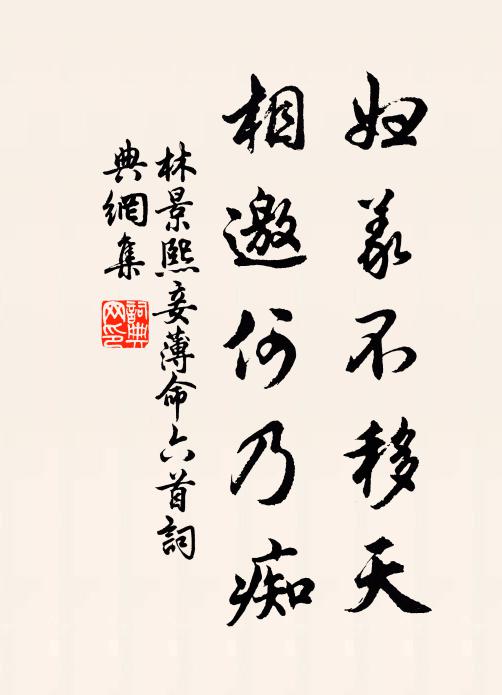 妇義不移天
相邀何乃痴
林景熙妾薄命六首詞
典網集
詞典網印